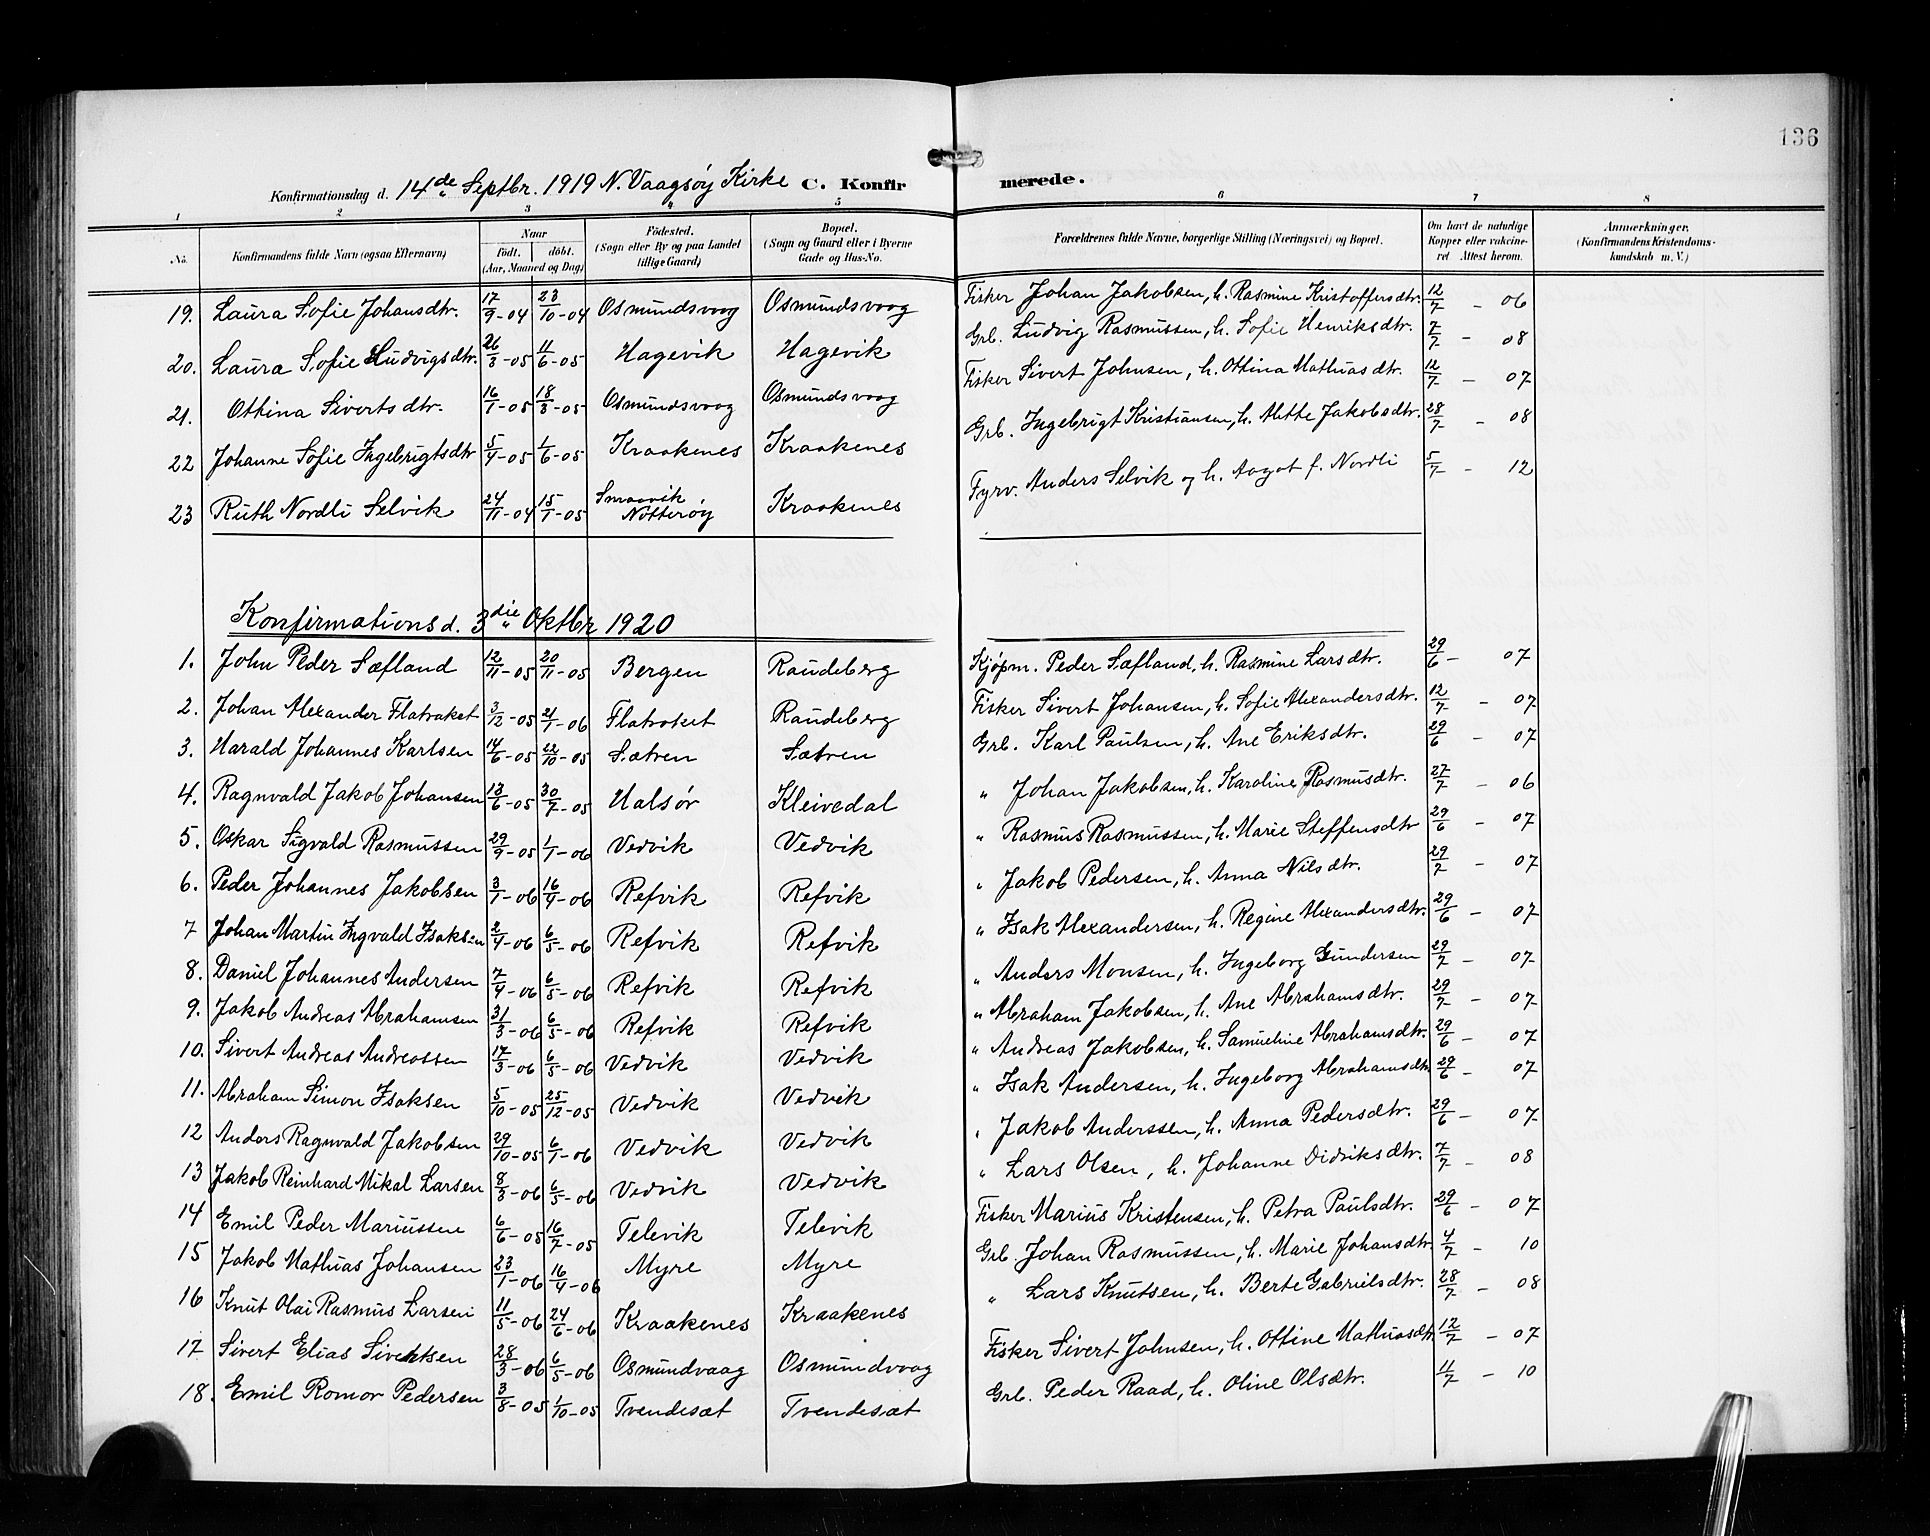 136
Konfirmationsdag d. 14de Septbr. 1919 N. Vaagsøy Kirke C. Konfirmerede.
1 2 3 4 5 6 7 8
No. Konfirmandens fulde Navn (ogsaa Efternavn) Naar Født. døbt. (Aar, Maaned og Dag) Fødested. (Sogn eller By og paa Landet tillige Gaard) Bopæl. (Sogn og Gaard eller i Byerne Gade og Hus-No. Forældrenes fulde Navne, borgerlige Stilling (Næringsvei) og Bopæl. Om havt de naturlige Kopper eller vakcineret. Attest herom. Anmærkninger. (Konfirmandens Kristendomskundskab m. V.)
19. Laura Sofie Johansdtr. 17/9-04 23/10-04 Osmundsvaag Osmundsvaag Fisker Johan Jakobsen, h. Rasmine Kristoffersdtr. 12/7 - 06
20. Laura Sofie Ludvigsdtr. 26/3-05 11/6-05 Hagevik Hagevik Grb. Ludvig Rasmussen, h. Sofie Henriksdtr. 7/7 - 08
21. Ottina Sivertsdtr. 16/1-05 18/3-05 Osmundsvaag Osmundsvaag Fisker Sivert Johnsen, h. Ottina Mathiasdtr. 12/7 - 07
22 Johanne Sofie Ingebrigtsdtr 5/4-05 1/6-05 Kraakenes Kraakenes Grb. Ingebrigt Kristiansen, h. Mette Jakobsdtr. 28/7 - 08
23 Ruth Nordli Selvik 24/11-04 15/1-05 Smaavik, Nøtterøy Kraakenes Fyrv. Anders Selvik og h. Aagot f. Nordli 5/7 - 12
Konfirmations d. 3die Oktbr 1920
1. John Peder Sæfland 12/11-05 20/11-05 Bergen Raudeberg Kjøpm. Peder Sæfland, h. Rasmine Larsdtr. 29/6 - 07
2. Johan Alexander Flatraket 3/12-05 21/1-06 Flatraket Raudeberg Fisker Sivert Johansen, h. Sofie Alexandersdtr. 12/7 - 07
3. Harald Johannes Karlsen 14/6-05 22/10-05 Sætren Sætren Grb. Karl Paulsen, h. Ane Eriksdtr. 29/6 - 07
4. Ragnvald Jakob Johansen 13/6-05 30/7-05 Halsør Kleivedal " Johan Jakobsen, h. Karoline Rasmusdtr. 27/7 - 06
5. Oskar Sigvald Rasmussen 29/9-05 1/1-06 Vedvik Vedvik " Rasmus Rasmussen, h. Marie Steffensdtr 29/6 - 07
6. Peder Johannes Jakobsen 3/1-06 16/4-06 Refvik Refvik " Jakob Pedersen, h. Anna Nilsdtr. 29/7 07
7 Johan Martin Ingvald Isaksen 2/4-06 6/5-06 Refvik Refvik " Isak Alexandersen, h. Regine Alexandersdtr. 29/6 - 07
8. Daniel Johannes Andersen 7/4-06 6/5-06 Refvik Refvik " Anders Monsen, h. Ingeborg Gundersen 29/7 - 07
9. Jakob Andreas Abrahamsen 31/3-06 6/5-06 Refvik Refvik " Abraham Jakobsen, h. Ane Abrahamsdtr. 29/7 - 07
10. Sivert Andreas Andreassen 17/3-06 6/5-06 Vedvik Vedvik " Andreas Jakobsen, h. Samueline Abrahamsdtr. 29/6 - 07
11. Abraham Simon Isaksen 5/10-05 25/12-05 Vedvik Vedvik " Isak Andersen, h. Ingeborg Abrahamsdtr 29/6 - 07
12 Anders Ragnvald Jakobsen 29/10-05 6/1-06 Vedvik Vedvik " Jakob Anderssen, h. Anna Pedersdtr. 29/6 - 07
13 Jakob Reinhard Mikal Larsen 8/3-06 6/5-06 Vedvik Vedvik " Lars Olsen, h. Johanne Didriksdtr. 7/7 - 08
14 Emil Peder Mariussen 6/6-05 16/7-05 Televik Televik Fisker Marius Kristensen, h. Petra Paulsdtr. 29/6 - 07
15 Jakob Mathias Johansen 23/1-06 16/4-06 Myre Myre Grb. Johan Rasmussen, h. Marie Johansdtr. 4/7 - 10
16 Knut Olai Rasmus Larsen 11/5-06 24/6-06 Kraakenes Kraakenes " Lars Knutsen, h. Berte Gabrielsdtr. 28/7 - 08
17 Sivert Elias Sivertsen 28/3-06 6/5-06 Osmundvaag Osmundvaag Fisker Sivert Johnsen, h. Ottine Mathiasdtr 12/7 - 07
18. Emil Romor Pedersen 3/8-05 1/10-05 Tvendesæt Tvendesæt Grb. Peder Raad, h. Oline Olsdtr. 11/7 - 10